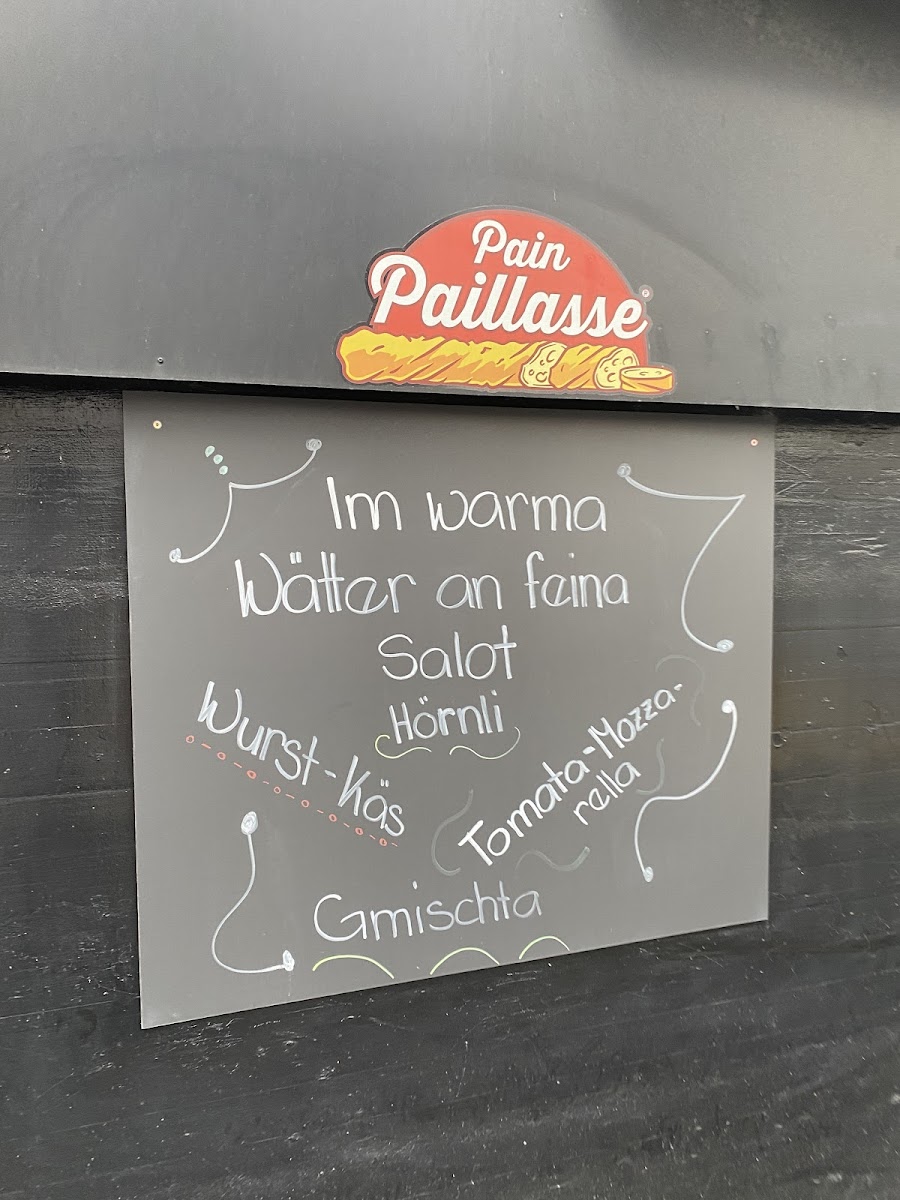 Pain
Paillasse
Im warma
Wätter an feina
Salot
Hörnli
Wurst-Käs
Tomata-Mozza-
rella
Gmischta